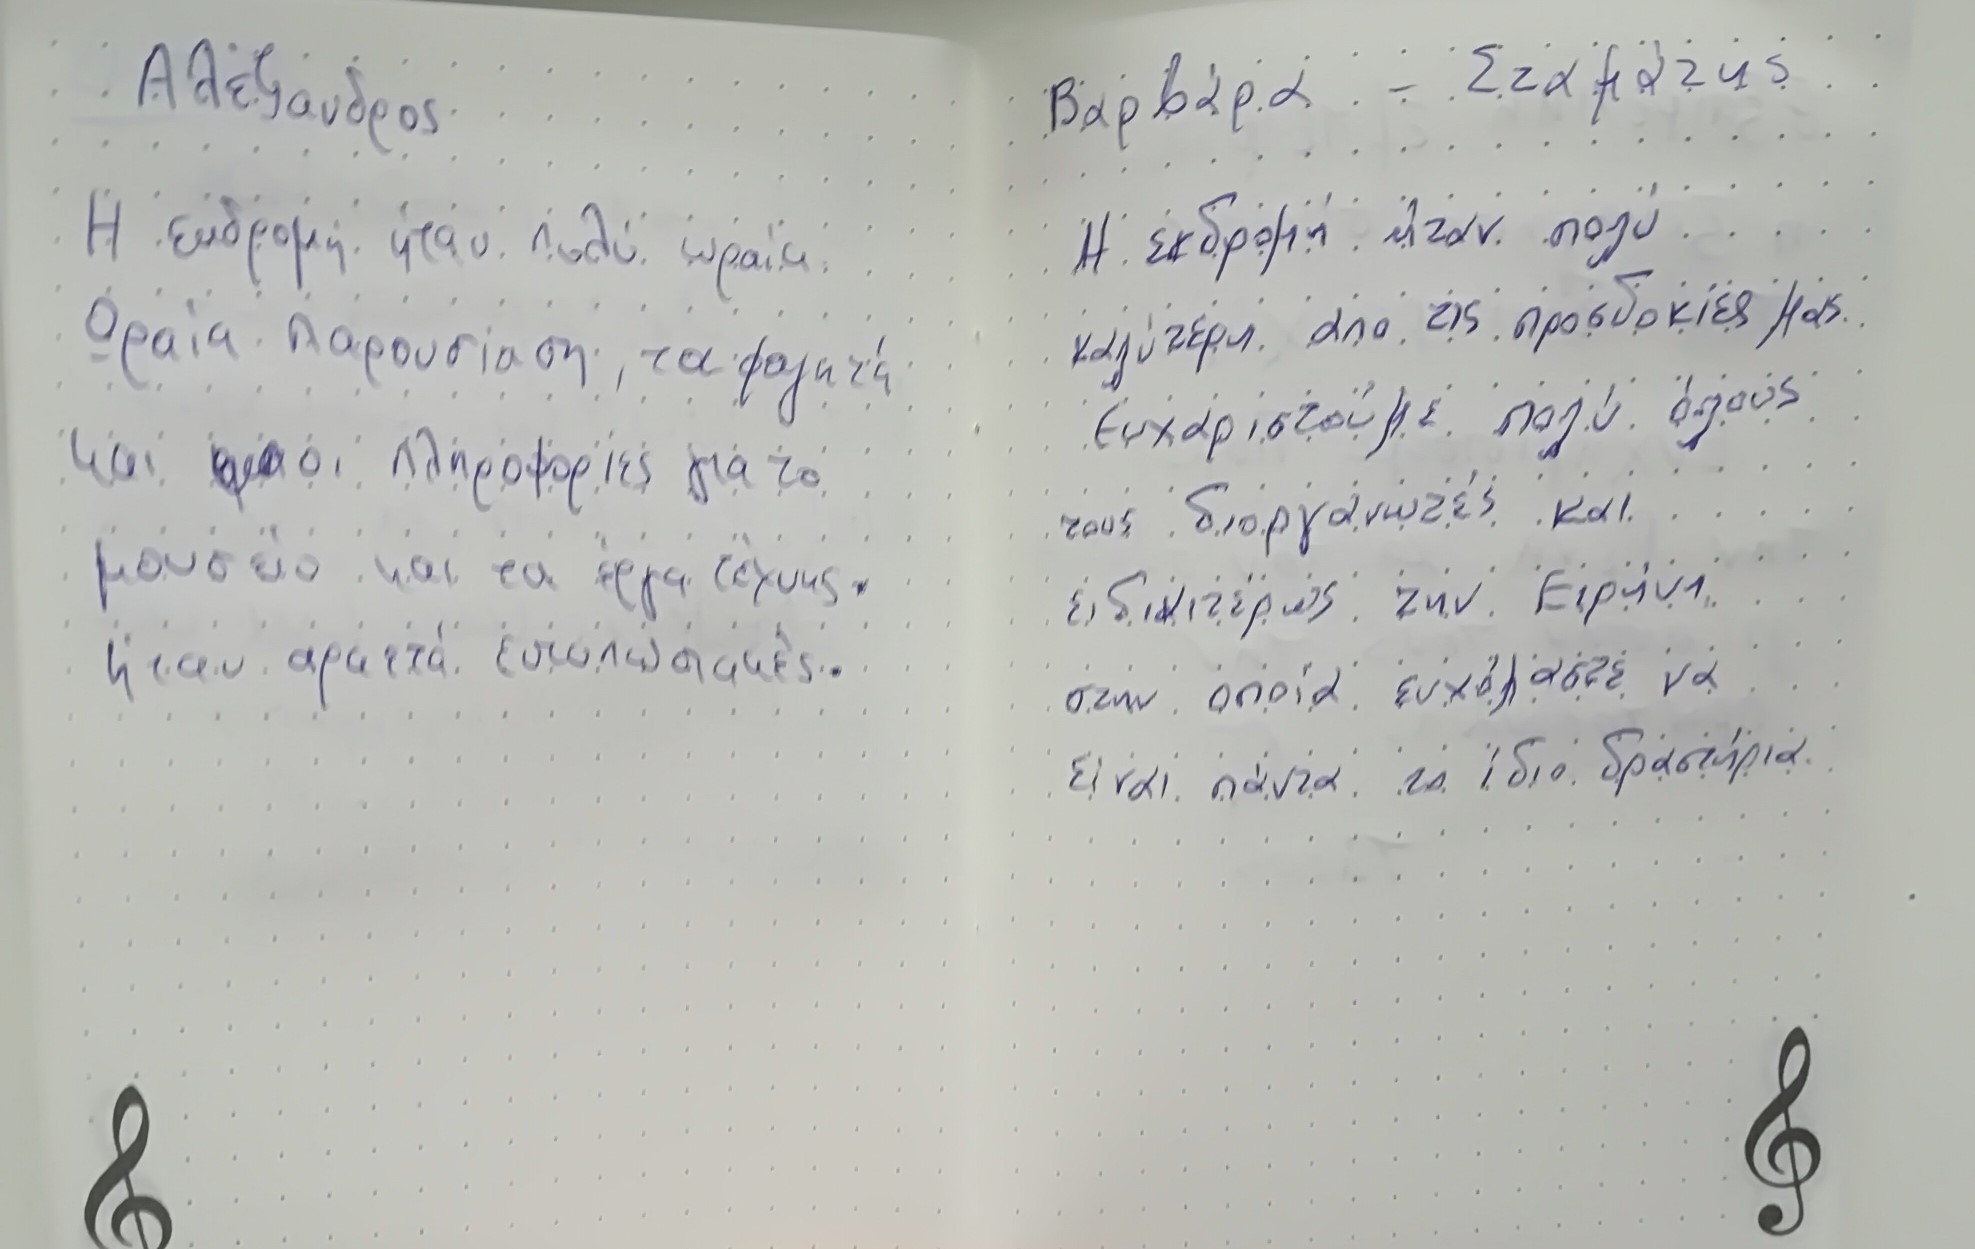 Αλέξανδρος
Η εκδρομή ήταν πολύ ωραία.
Ωραία παρουσίαση, τα φαγητά
και οι πληροφορίες για το
μουσείο και τα έργα τέχνης.
ήταν αρκετά εντυπωσιακές.
Βαρβάρα - Σταμάτης
Η εκδρομή ήταν πολύ
καλύτερη απο τις προσδοκίες μας.
Ευχαριστούμε πολύ όλους
τους διοργανωτές και
ειδικιτέρως την Ειρήνη
στην οποία ευχόμαστε να
είναι πάντα το ίδιο δραστήρια.